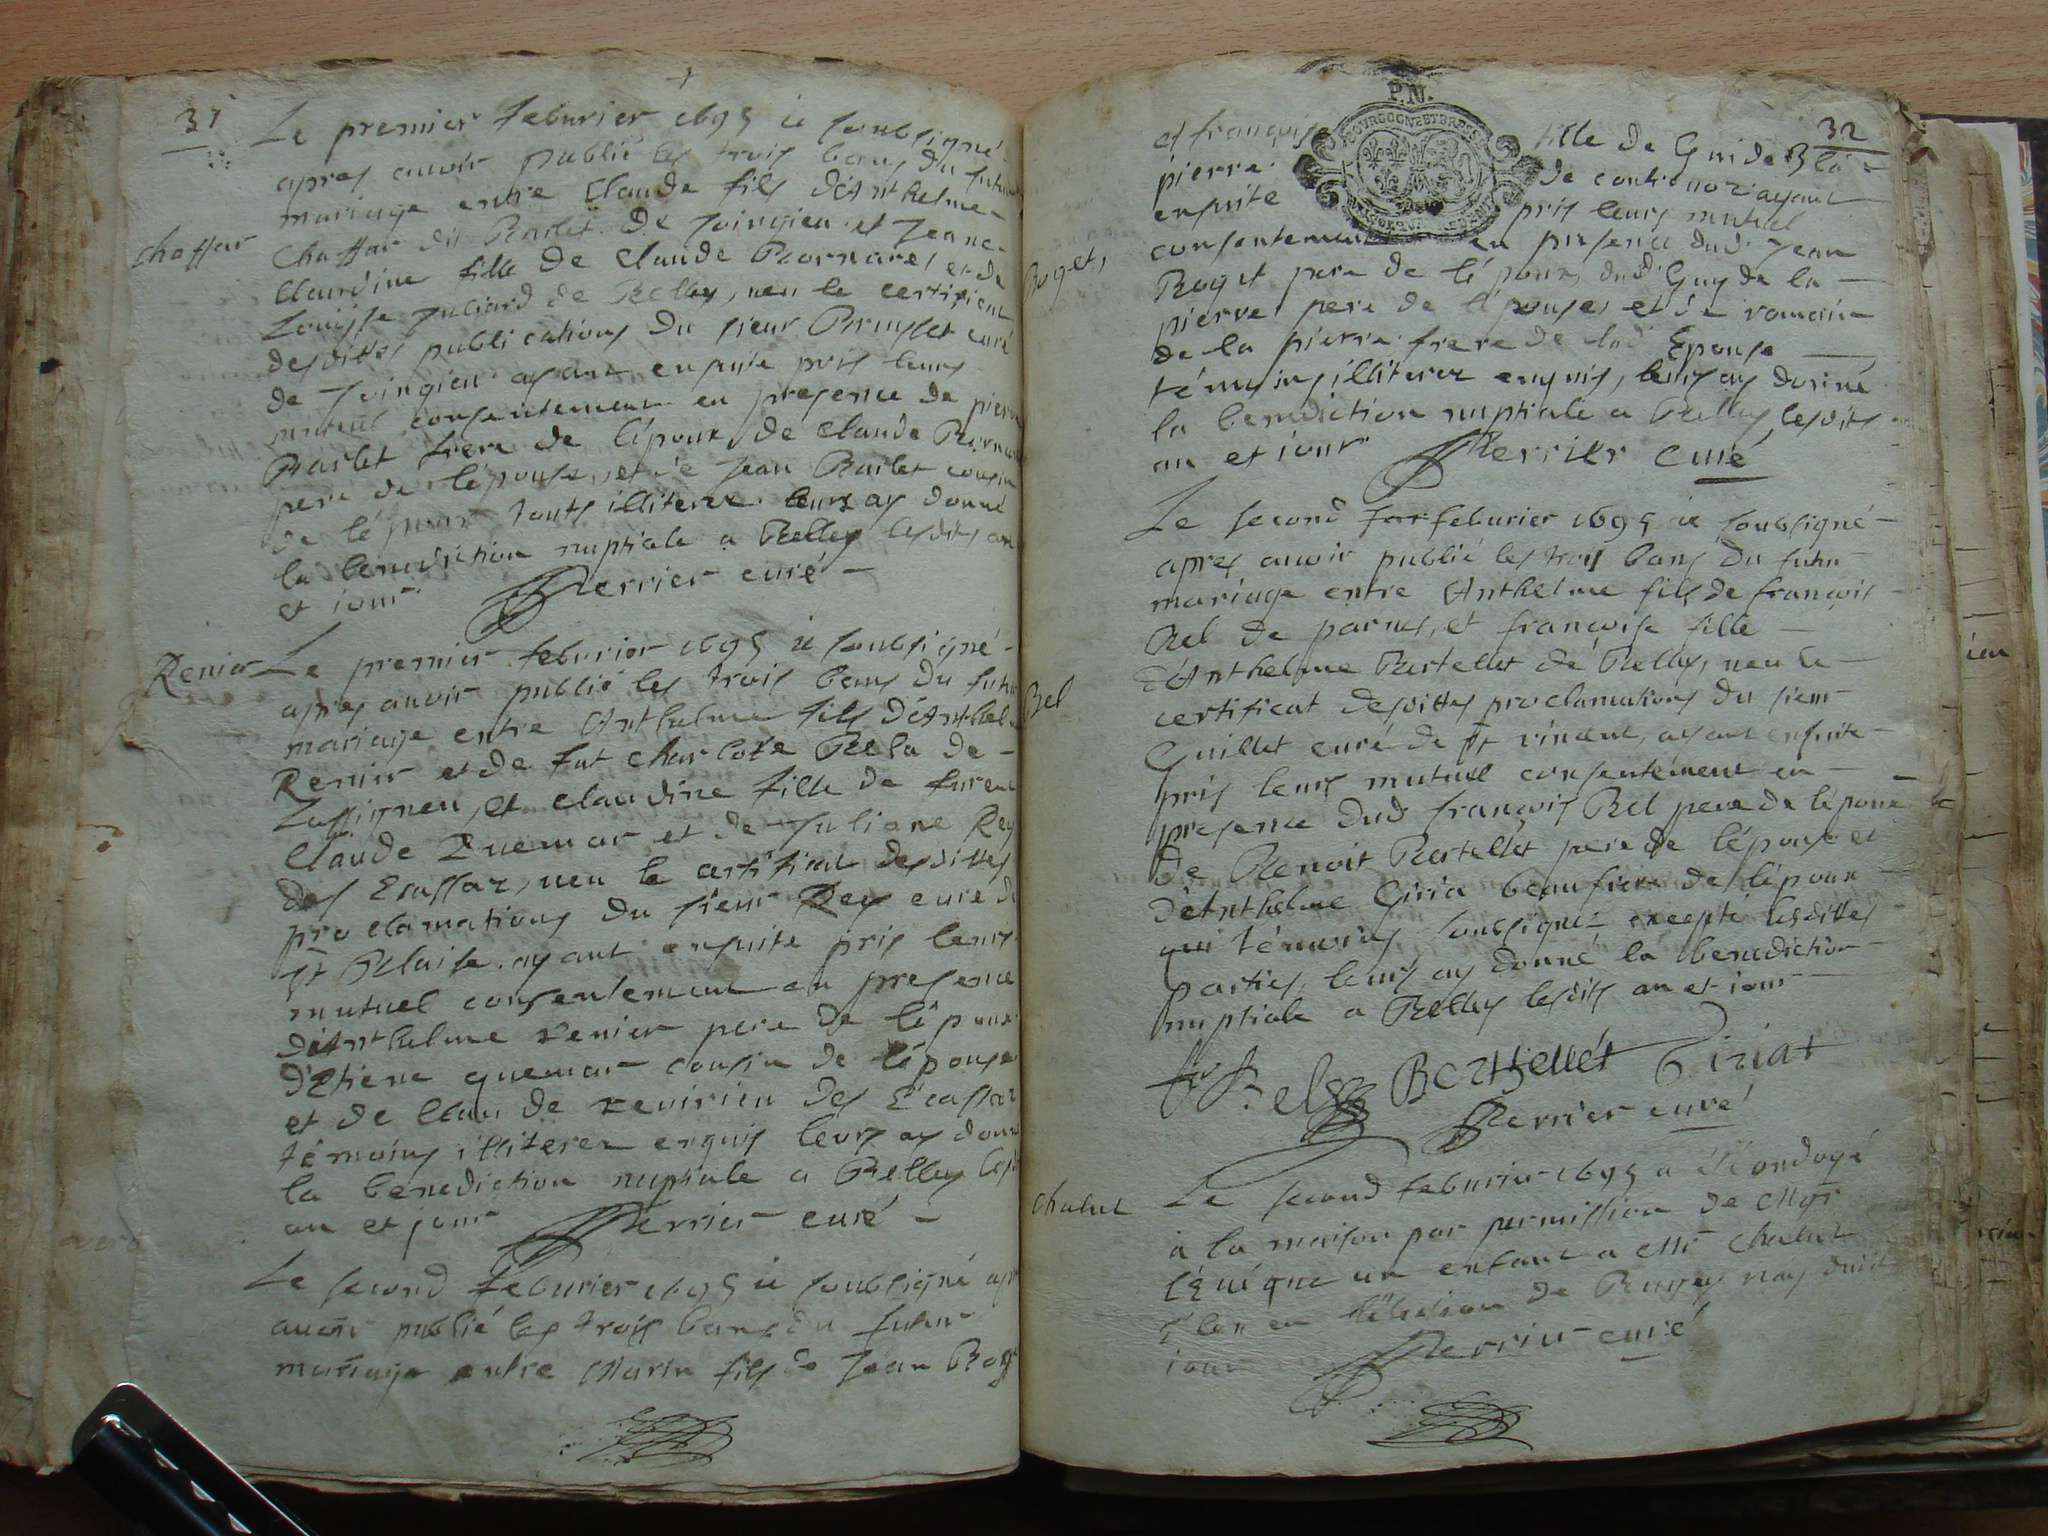 31
Le premier feburier 1695 ie soubsigné
apres auoir publié les trois bans du futur
mariage entre Claude fils d'Anthelme
Chaffar
Chaffar dit Barlet de et Jeane
Claudine fille de Claude et de
Louisse Juliard de Belley, ueu le certificat
desdittes publications du sieur curé
de ayant ensuite pris leurs
mutuel consentement en presence de pierre
Barlet frere de l'époux, de Claude
pere de l'épouse, et de Jean Barlet cousin
de l'époux touts illiterez leurs ay donné
la benediction nuptiale a Belley lesdits an
et iour Perrier curé
Renier
Le premier feburier 1695 ie soubsigné
apres auoir publié les trois bans du futur
mariage entre Anthelme fils d'Anthelme
Renier et de fut Charlote de
et Claudine fille de fureut
Claude et de Juliane Rey
des Ecassaz, ueu le certificat desdittes
proclamations du sieur Rey curé de
St Blaise. ayant ensuite pris leurs
mutuel consentement en presence
d'Anthelme renier pere de l'époux
d'Etiene quemar cousin de l'épouse
et de Claude reuirieu des Ecassaz
témoins illiterez enquis leurs ay donné
la benediction nuptiale a Belley
an et jour Perrier curé
Le second feburier 1695 ie soubsigné
auoir publié les trois bans du futur
mariage entre Marin fils de Jean
32
P.N.
BOURGOGNE ET BRESSE
et françoise fille de Gui de
pierre de ayant
ensuite pris leurs mutuel
consentement en presence dud' Jean
Roget
Roget pere de l'époux, dud' Guy de la
pierre pere de l'épouse, et de romain
de la pierre frere de lad' Epouse
témoins illiterez enquis, leurs ay donné
la benediction nuptiale a Belley lesdits
an et iour Perrier curé
Le second feburier 1695 ie soubsigné
apres auoir publié les trois bans du futur
mariage entre Anthelme fils de françois
Bel
Bel de parues, et françoise fille
d'Anthelme Bertellet de Belley, ueu le
certificat desdittes proclamations du sieur
Guillet curé de ayant ensuite
pris leurs mutuel consentement en
presence dud' françois Bel pere de l'époux
de Benoit Bertellet pere de l'épouse et
d'Anthelme Giria beaufrere de l'époux
qui témoins soubsigné excepté lesdittes
parties, leurs ay donné la benediction
nuptiale a Belley lesdits an et iour
Bel Berthellet Giriat
Perrier curé
Chalut
Le second feburier 1695 a été ondoyé
a la maison par permission de Mgr
l'Euêque un enfant a Mr Chalut
en l'élection de Bugey nay dudit
iour Perrier curé